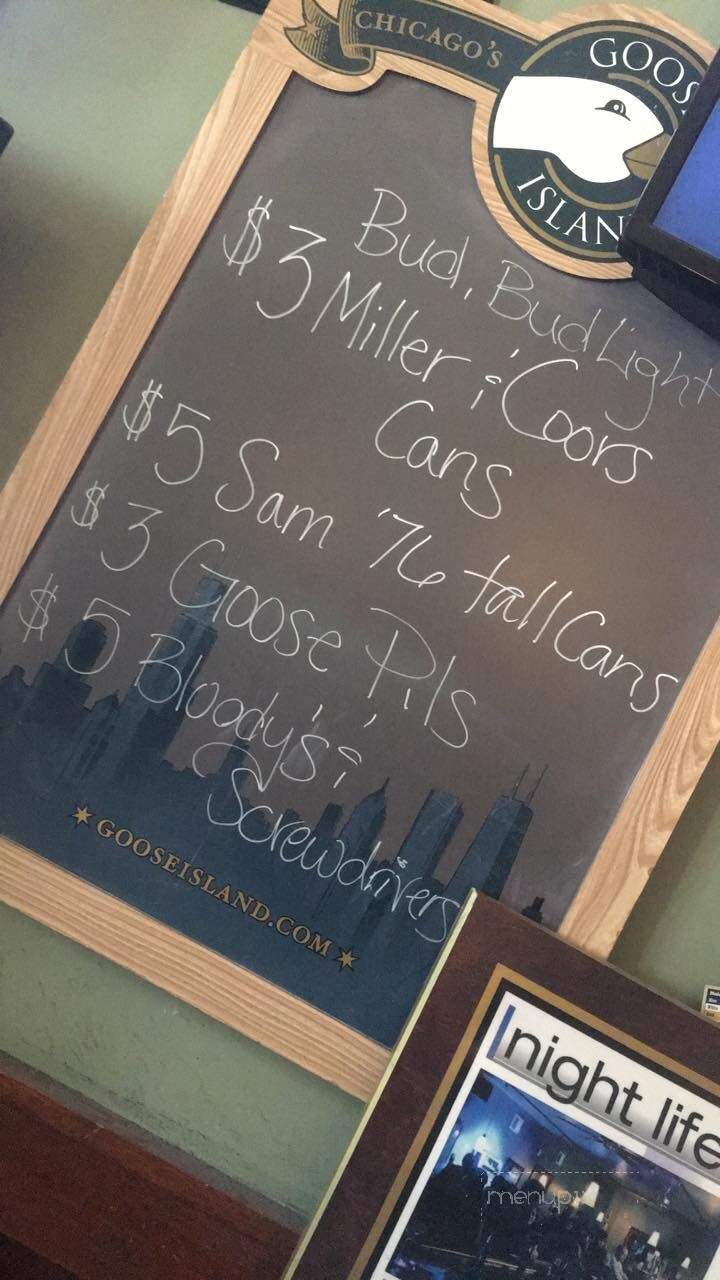 CHICAGO'S
GOOS
ISLAN
Bud, Bud Light
$3 Miller & Coors
Cans
$5 Sam '76 tall Cans
$3 Goose Pils
$5 Bloody's &
Screwdrivers
GOOSEISLAND.COM
night life
menupix